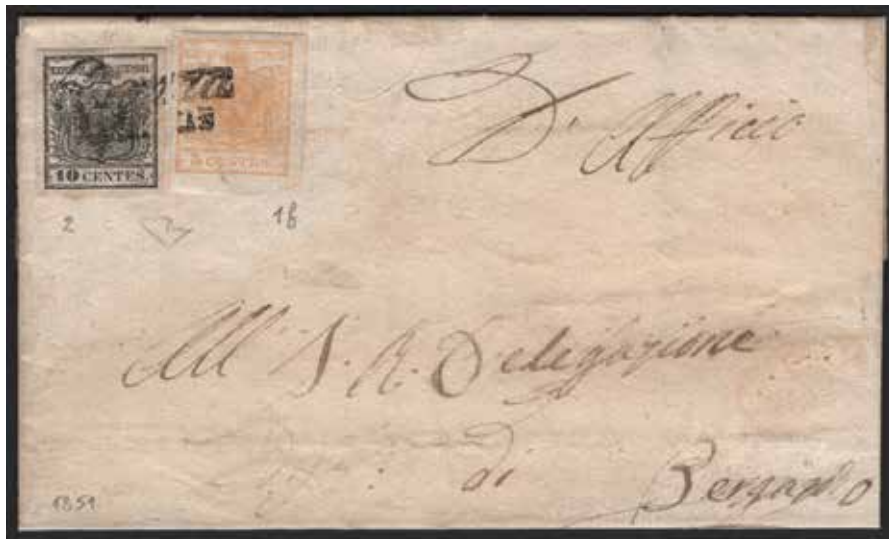 10 CENTES.
5 CENTES.
2
1f
D'Officio
All' I. R. Delegazione
di
Bergamo
1851